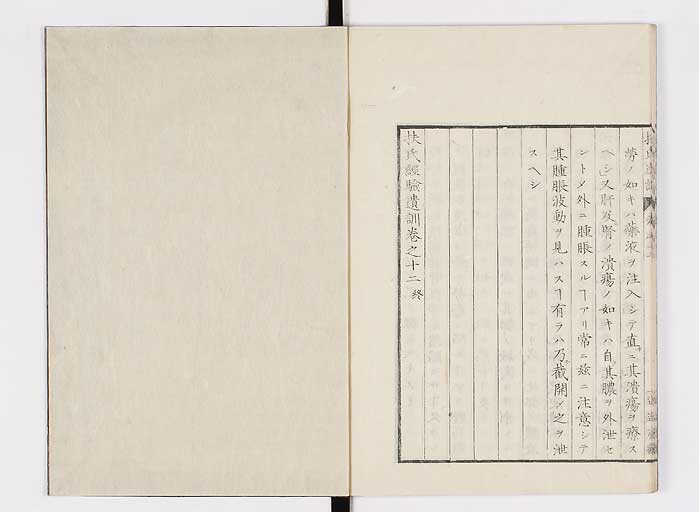 勞ノ如キハ藥液ヲ注入シテ直ニ其潰瘍ヲ療ス
ヘシ又肝及腎ノ潰瘍ノ如キハ自其膿ヲ外泄セ
ントメ外ニ腫脹スルヿアリ常ニ玆ニ注意シテ
其腫脹波動ヲ見ハスヿ有ラハ乃截開メ之ヲ泄
スヘシ
扶氏經驗遺訓卷之十二 終